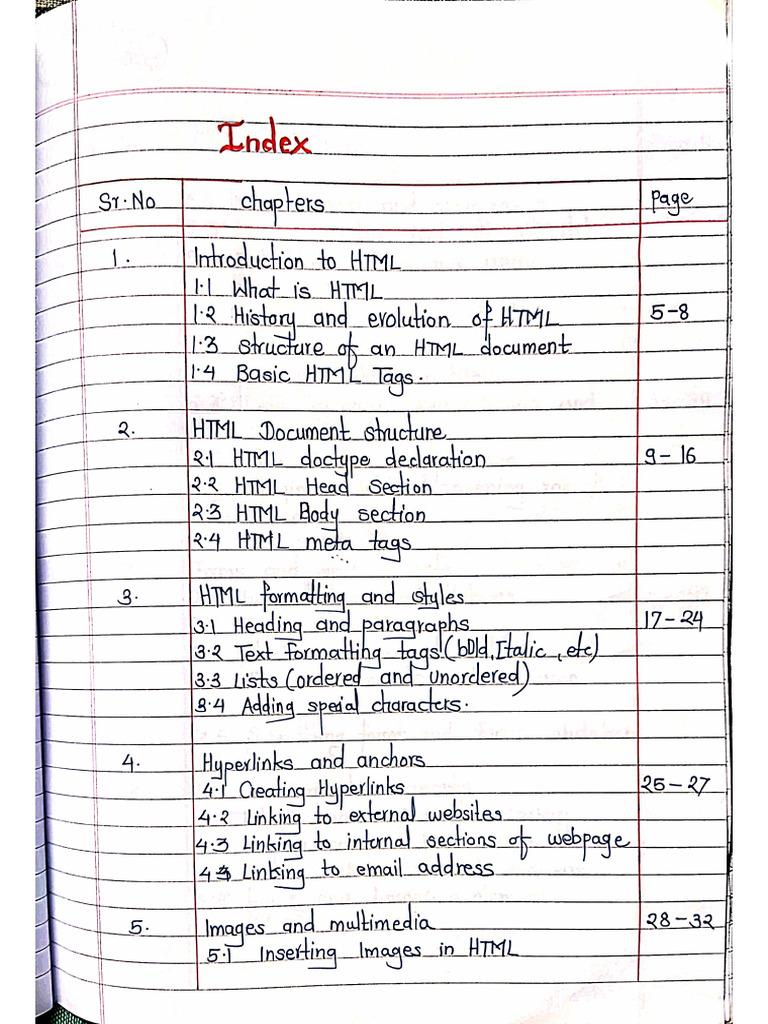 Index
Sr.No chapters Page
1. Introduction to HTML
1.1 What is HTML
1.2 History and evolution of HTML 5-8
1.3 structure of an HTML document
1.4 Basic HTML Tags.
2. HTML Document structure
2.1 HTML doctype declaration 9-16
2.2 HTML Head section
2.3 HTML Body section
2.4 HTML meta tags
3. HTML formatting and styles
3.1 Heading and paragraphs 17-24
3.2 Text formatting tags (bold, Italic, etc)
3.3 Lists (ordered and unordered)
3.4 Adding special characters.
4. Hyperlinks and anchors
4.1 Creating Hyperlinks 25-27
4.2 Linking to external websites
4.3 Linking to internal sections of webpage
4.4 Linking to email address
5. Images and multimedia 28-32
5.1 Inserting Images in HTML